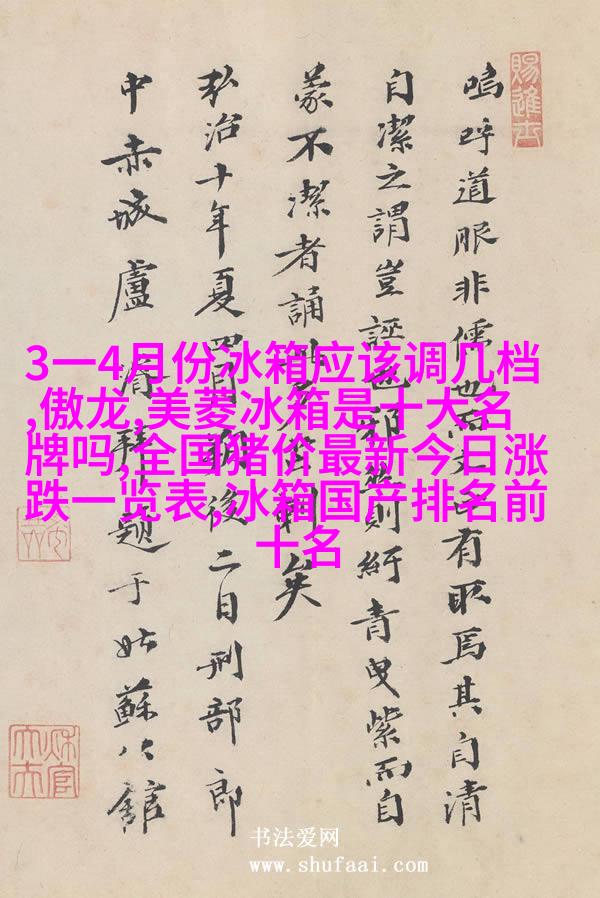 3一4月份冰箱应该调几档
,傲龙,美菱冰箱是十大名
牌吗,全国猪价最新今日涨
跌一览表,冰箱国产排名前
十名
賜進士
嗚呼道服非儒也而文有取焉其自清
自潔之謂豈誣也則紆青曳紫而自
蒙不潔者誦此矣
弘治十年夏四月朔後二日刑部郎
中赤城盧拜題于姑蘇公館
书法爱网
www.shufaai.com